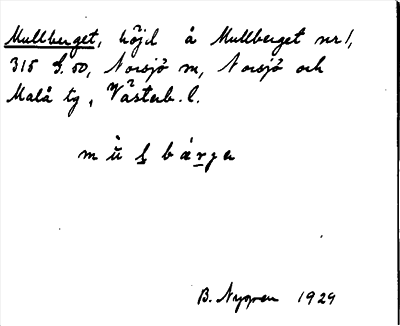 Mullberget, höjd å Mullberget nr 1,
315 S.50, Norsjö sn, Norsjö och
Malå tg, Västerb. l.
B. Nygren 1929